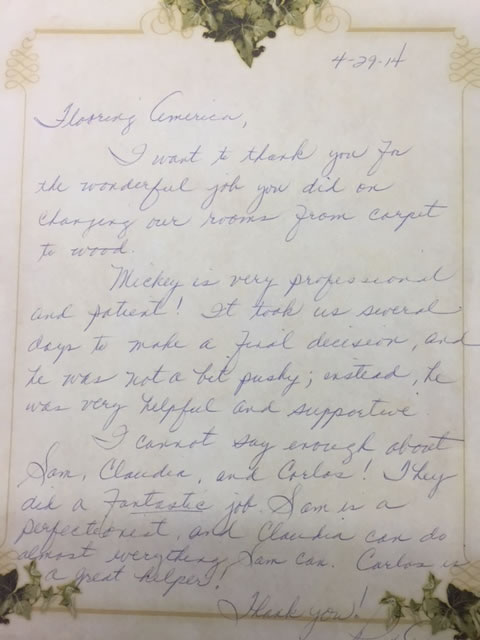 4-29-14
Flooring America,
I want to thank you for
the wonderful job you did on
changing our rooms from carpet
to wood.
Mickey is very professional
and patient! It took us several
days to make a final decision, and
he was not a bit pushy; instead, he
was very helpful and supportive
I cannot say enough about
Sam, Claudia, and Carlos! They
did a fantastic job. Sam is a
perfectionist, and Claudia can do
almost everything Sam can. Carlos is
a great helper!
Thank you!